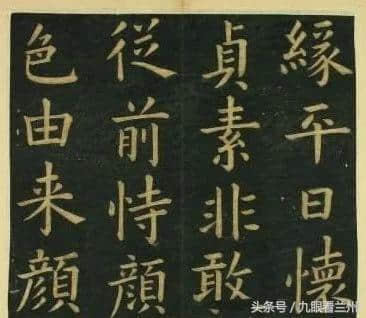 緣平日懷
貞素非敢
従前恃顔
色由来顔
头条号/九眼看兰州